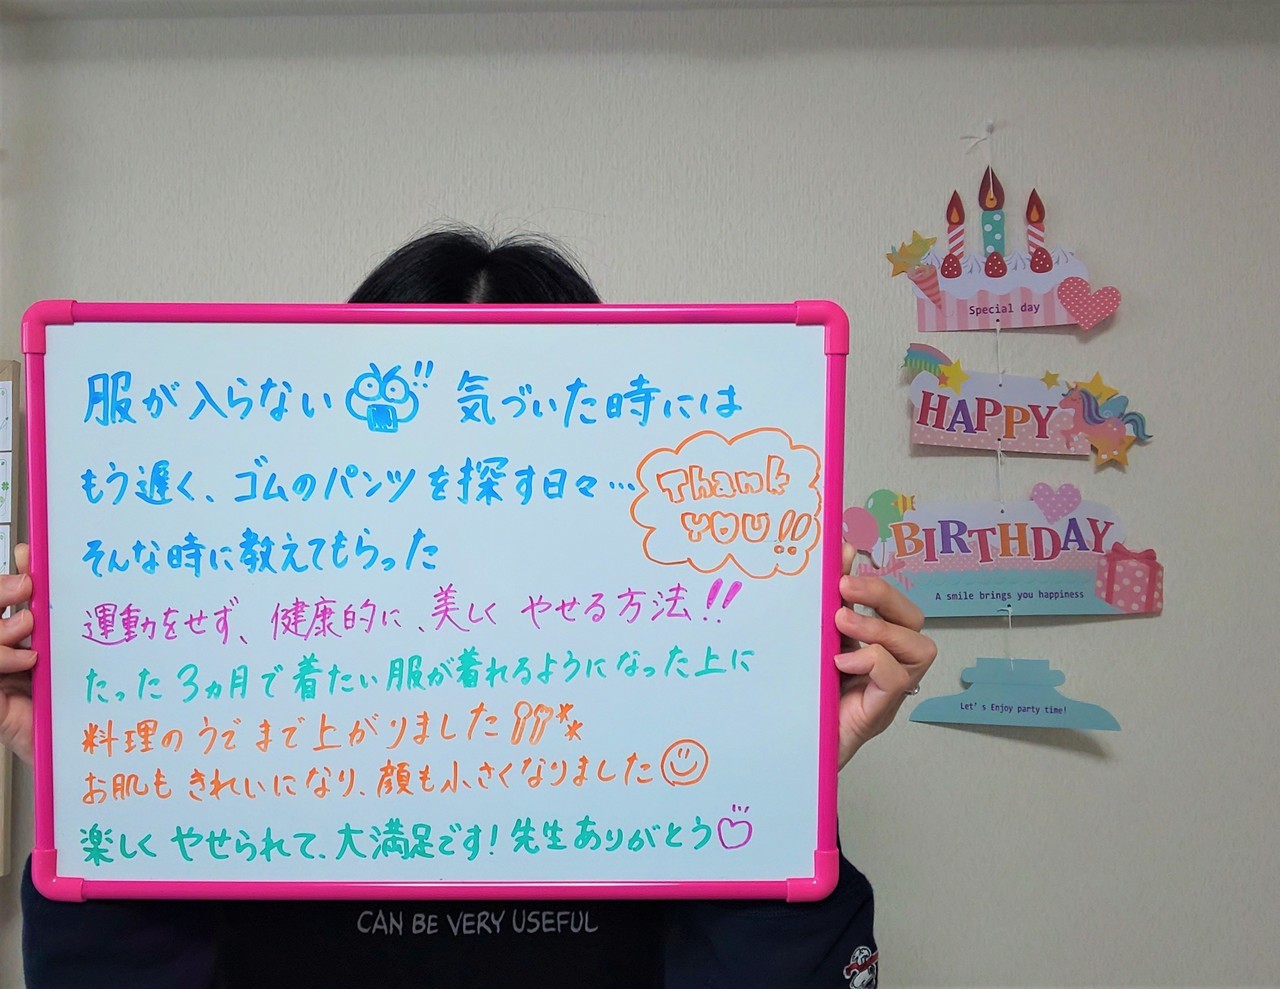 服が入らない!! 気づいた時には
もう遅く、ゴムのパンツを探す日々…
Thank
YOU!!
そんな時に教えてもらった
運動をせず、健康的に、美しく やせる方法!!
たった3ヵ月で着たい服が着れるようになった上に
料理のうでまで上がりました
お肌も きれいになり、顔も小さくなりました
楽しく やせられて、大満足です! 先生ありがとう
CAN BE VERY USEFUL
Special day
HAPPY
BIRTHDAY
A smile brings you happiness
Let's Enjoy party time!